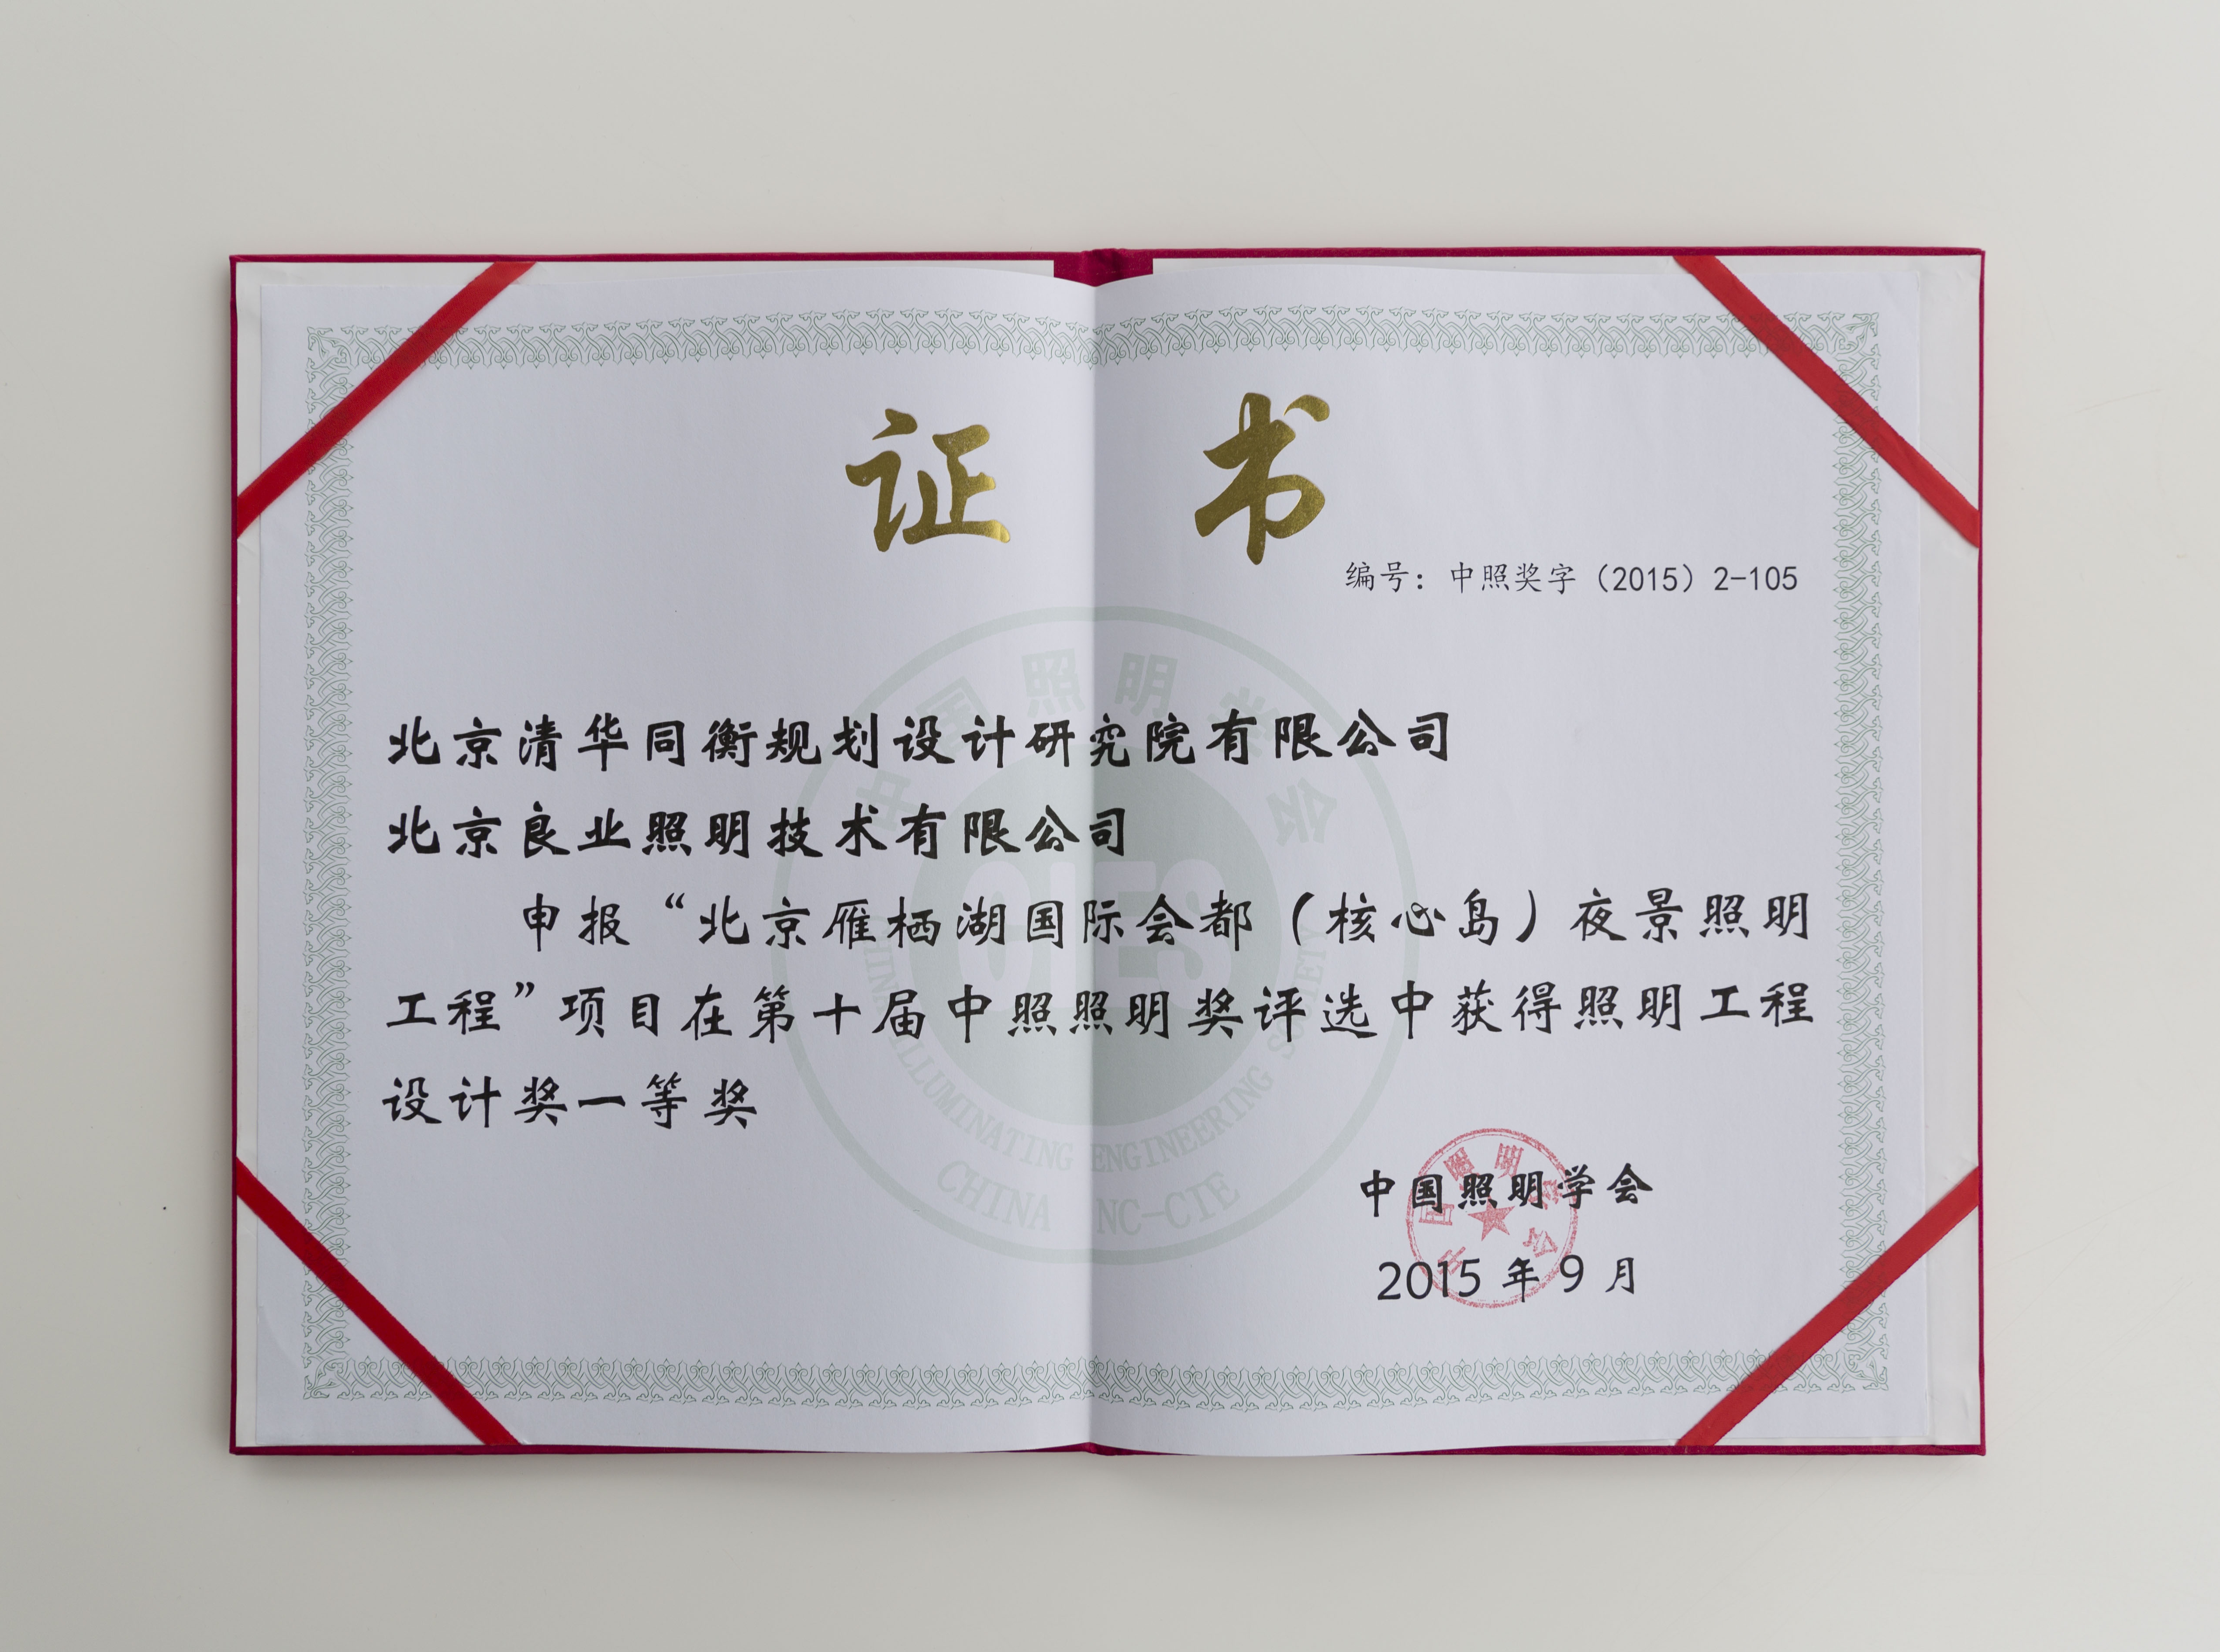 证 书
编号：中照奖字（2015）2-105
北京清华同衡规划设计研究院有限公司
北京良业照明技术有限公司
申报“北京雁栖湖国际会都（核心岛）夜景照明
工程”项目在第十届中照照明奖评选中获得照明工程
设计奖一等奖
中国照明学会
2015 年 9 月
中国照明学会
CIES
CHINA ILLUMINATING ENGINEERING SOCIETY
CHINA NC-CIE
中国照明学会